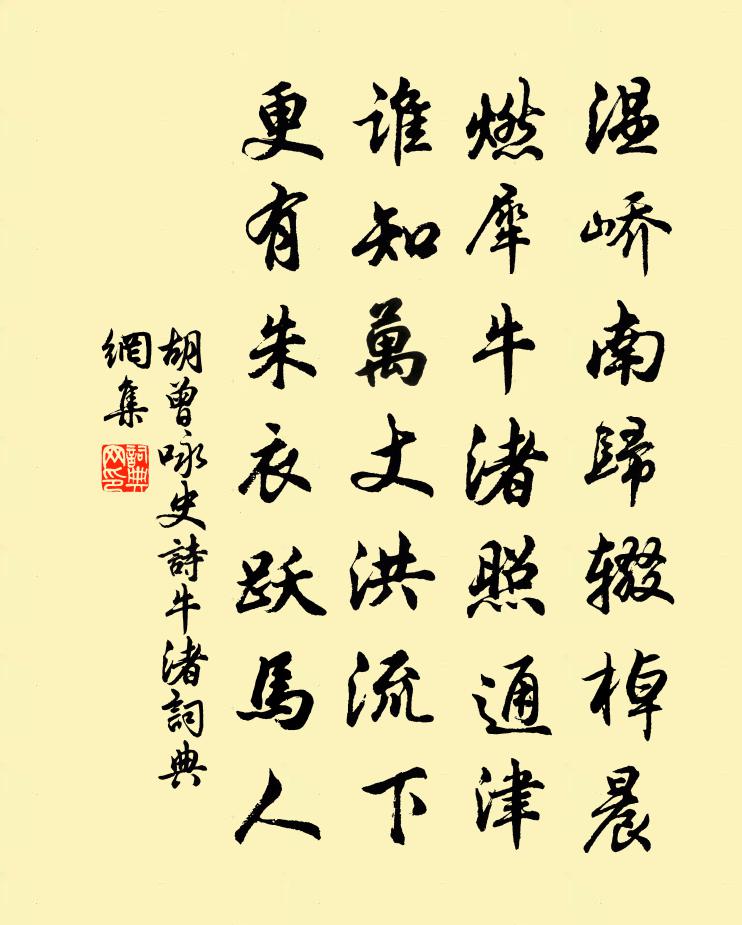 温峤南歸辍棹晨
燃犀牛渚照通津
誰知萬丈洪流下
更有朱衣跃馬人
胡曾咏史詩牛渚詞典
網集
詞典网印